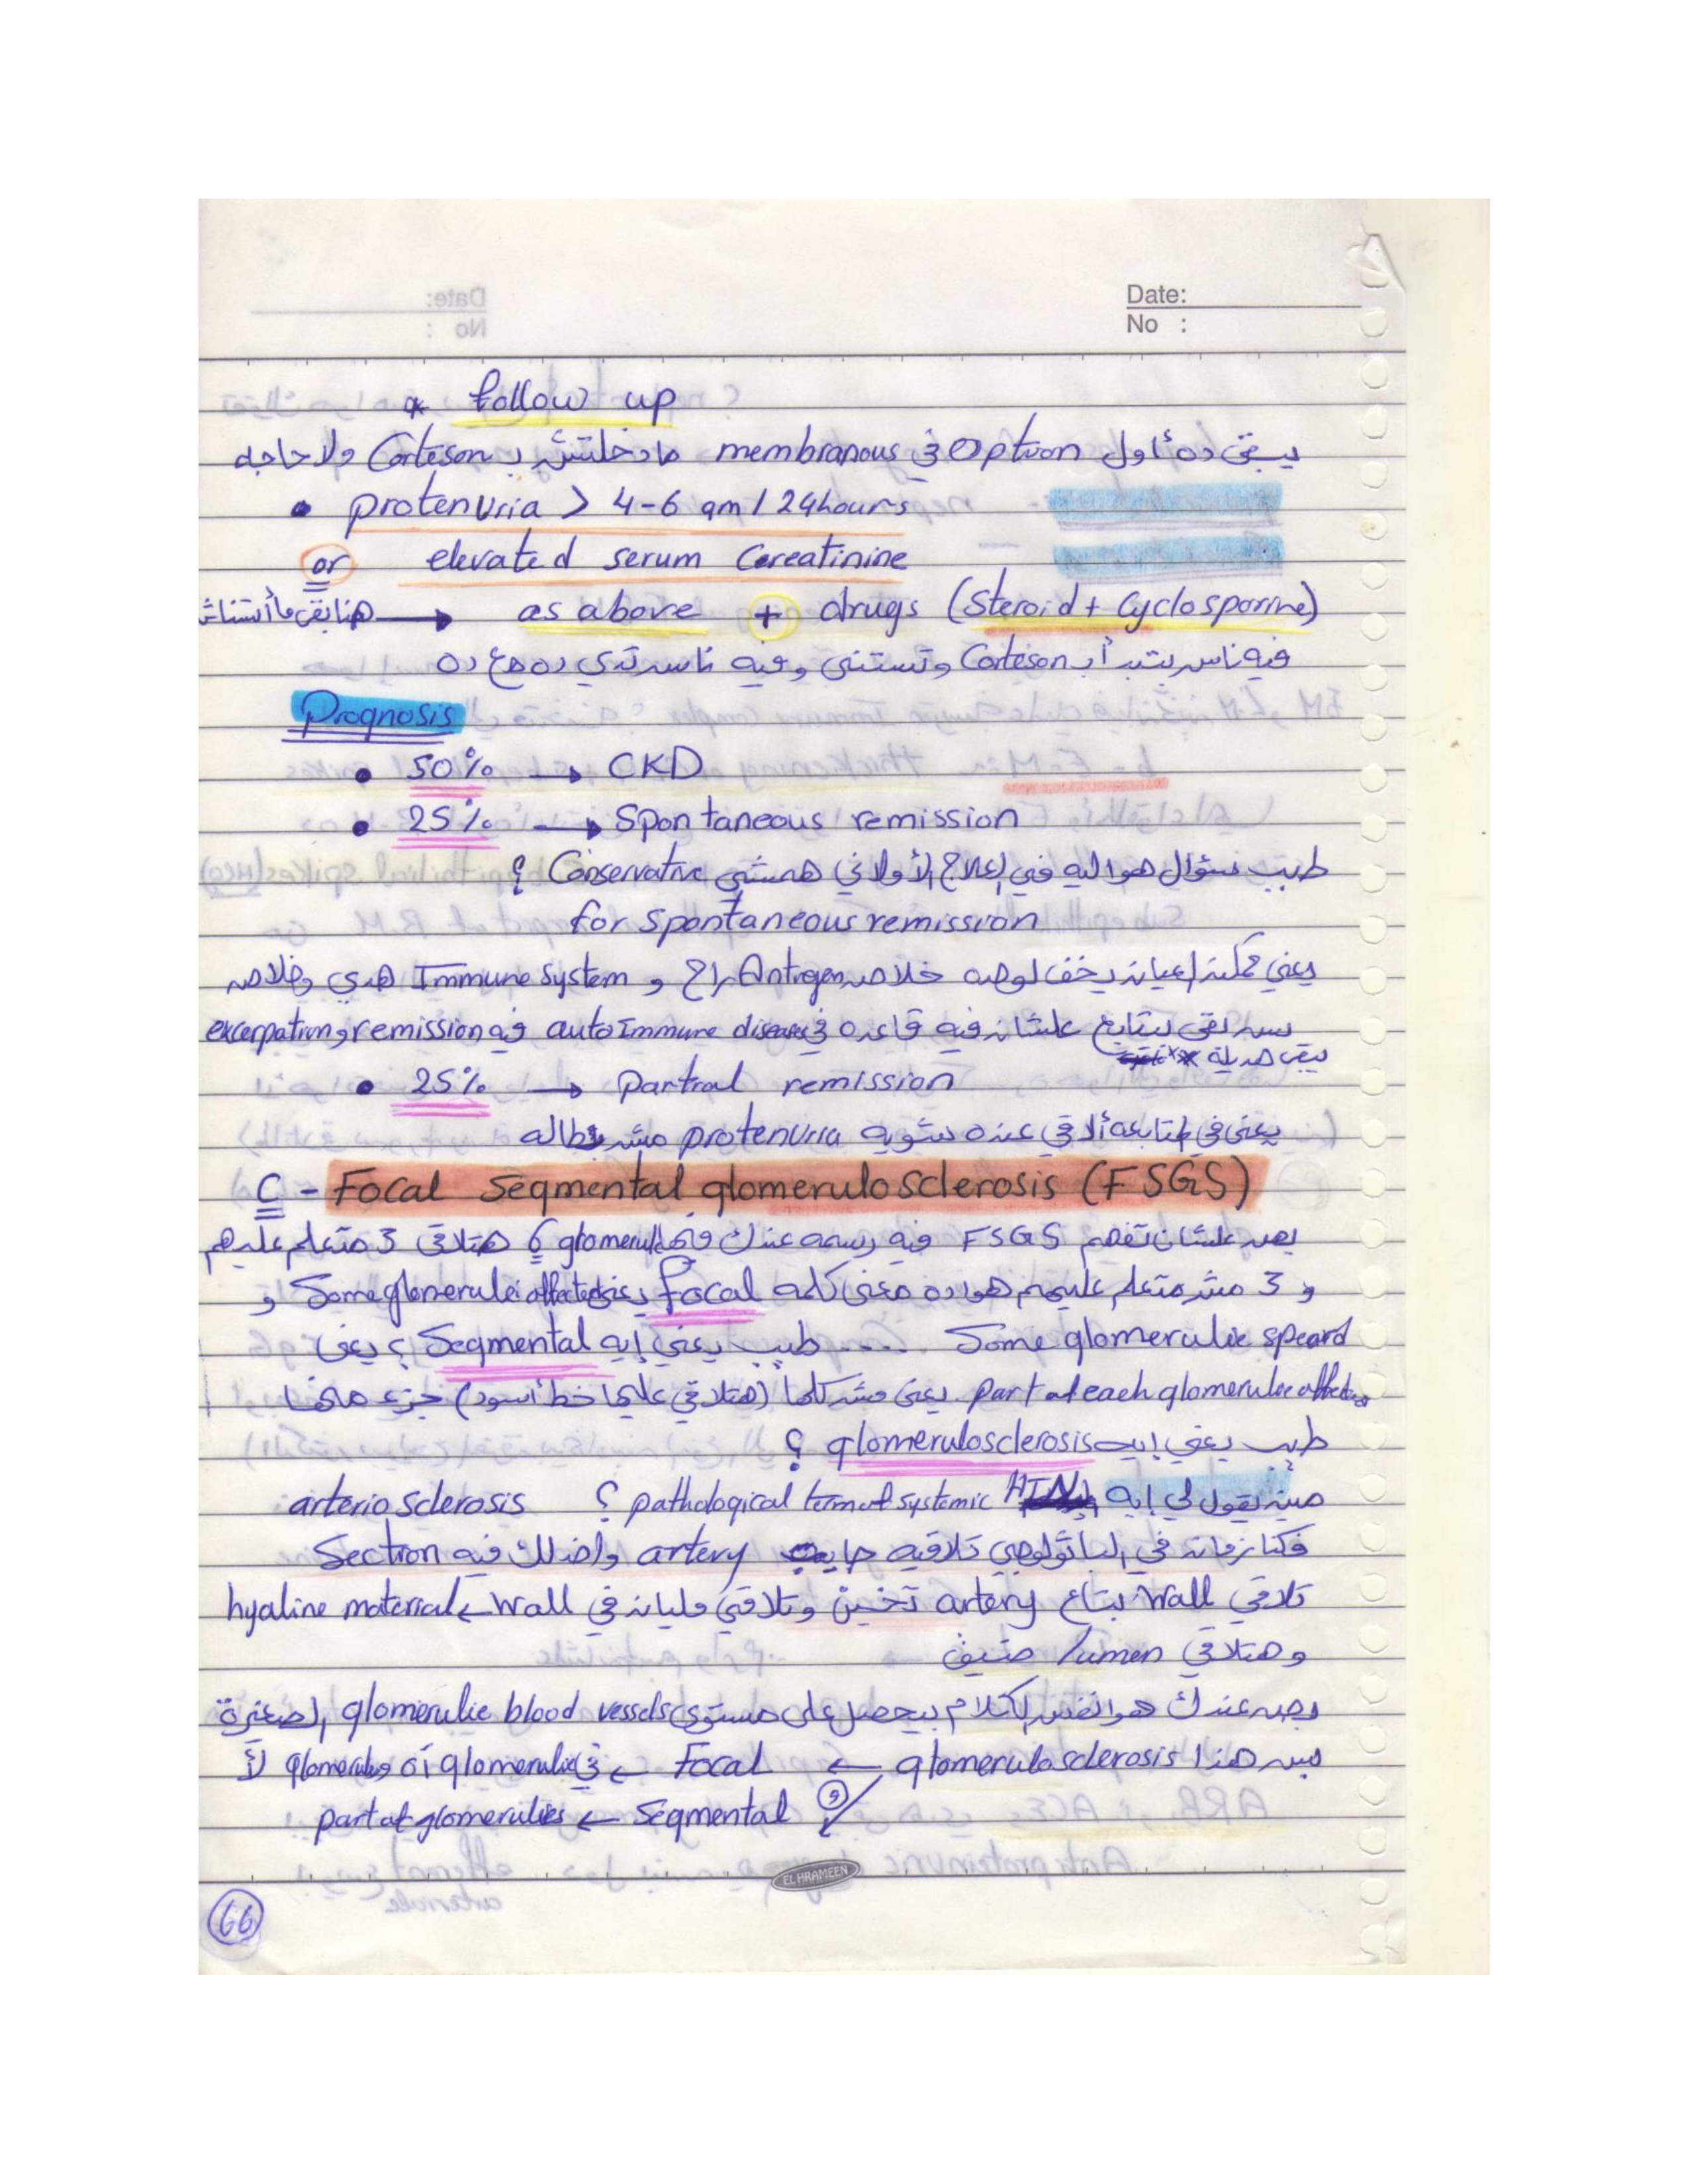 Date:
No :
* follow up
يبقى ده أول Option في membranous مادخلتش بـ Corteson ولا حاجه
• protenuria > 4-6 gm / 24hours
or elevated serum Cereatinine
هنا بقى مأستناش → as above + drugs (Steroid + Cyclosporine)
فيه ناس بتبدأ بـ Corteson وتستنى وفيه ناس تدي ده مع ده
Prognosis
• 50% → CKD
• 25% → Spontaneous remission
طيب سؤال هو اليه في العلاج الأولاني همشي Conservative ؟
for spontaneous remission
يعني ممكن العيان يخف لوحده خلاص Antigen راح و Immune System هدي وخلاص
بس بقى يتابع علشان فيه قاعده في autoImmune diseases فيه remission و excerpation
• 25% → partial remission
يعني في المتابعه ألاقي عنده شوية protenuria مش بطاله
C - Focal Segmental glomerulosclerosis (FSGS)
بص علشان تفهم FSGS فيه رسمه عندك فيها 6 glomeruli هتلاقي 3 متعلم عليهم
و 3 مش متعلم عليهم هو ده معنى كلمه focal يعني Some glomerulei affected و
Some glomerulie speard .... طيب يعني إيه Segmental ؟ يعني
part of each glomerulie affected يعني مش كلها (هتلاقي عليها خط أسود) جزء منها
طيب يعني إيه glomerulosclerosis ؟
مين يقول لي إيه pathological term of systemic HTN ؟ arteriosclerosis
فكنا زمان في الباثولوجي تلاقيه جايب artery واخدلك فيه Section
تلاقي Wall بتاع artery تخين وتلاقي مليان في Wall ← hyaline material
وهتلاقي lumen ضيق
بص عندك هو نفس الكلام بيحصل على مستوى glomerulie blood vessels الصغيرة
بس هنا glomerulosclerosis ← Focal ← في glomerulie أه و glomerulus لأ
و Segmental ← part of glomerulies
EL HRAMEEN
66